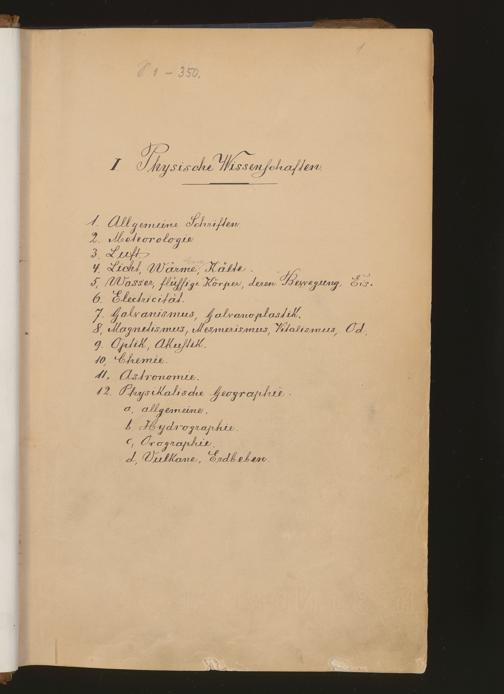 1
1 – 350.
I Physische Wissenschaften
1. Allgemeine Schriften.
2. Meteorologie
3. Luft
4. Licht, Wärme, Kälte.
5. Wasser, flüssige Körper, deren Bewegung. Eis.
6. Electricität.
7. Galvanismus, Galvanoplastik.
8. Magnetismus, Mesmerismus, Vitalismus, Od.
9. Optik, Akustik.
10. Chemie.
11. Astronomie.
12. Physikalische Geographie.
a. allgemeine.
b. Hydrographie.
c. Orographie.
d. Vulkane, Erdbeben.